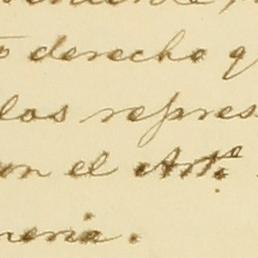 derecho q
los repres
on el Art.º
neria.